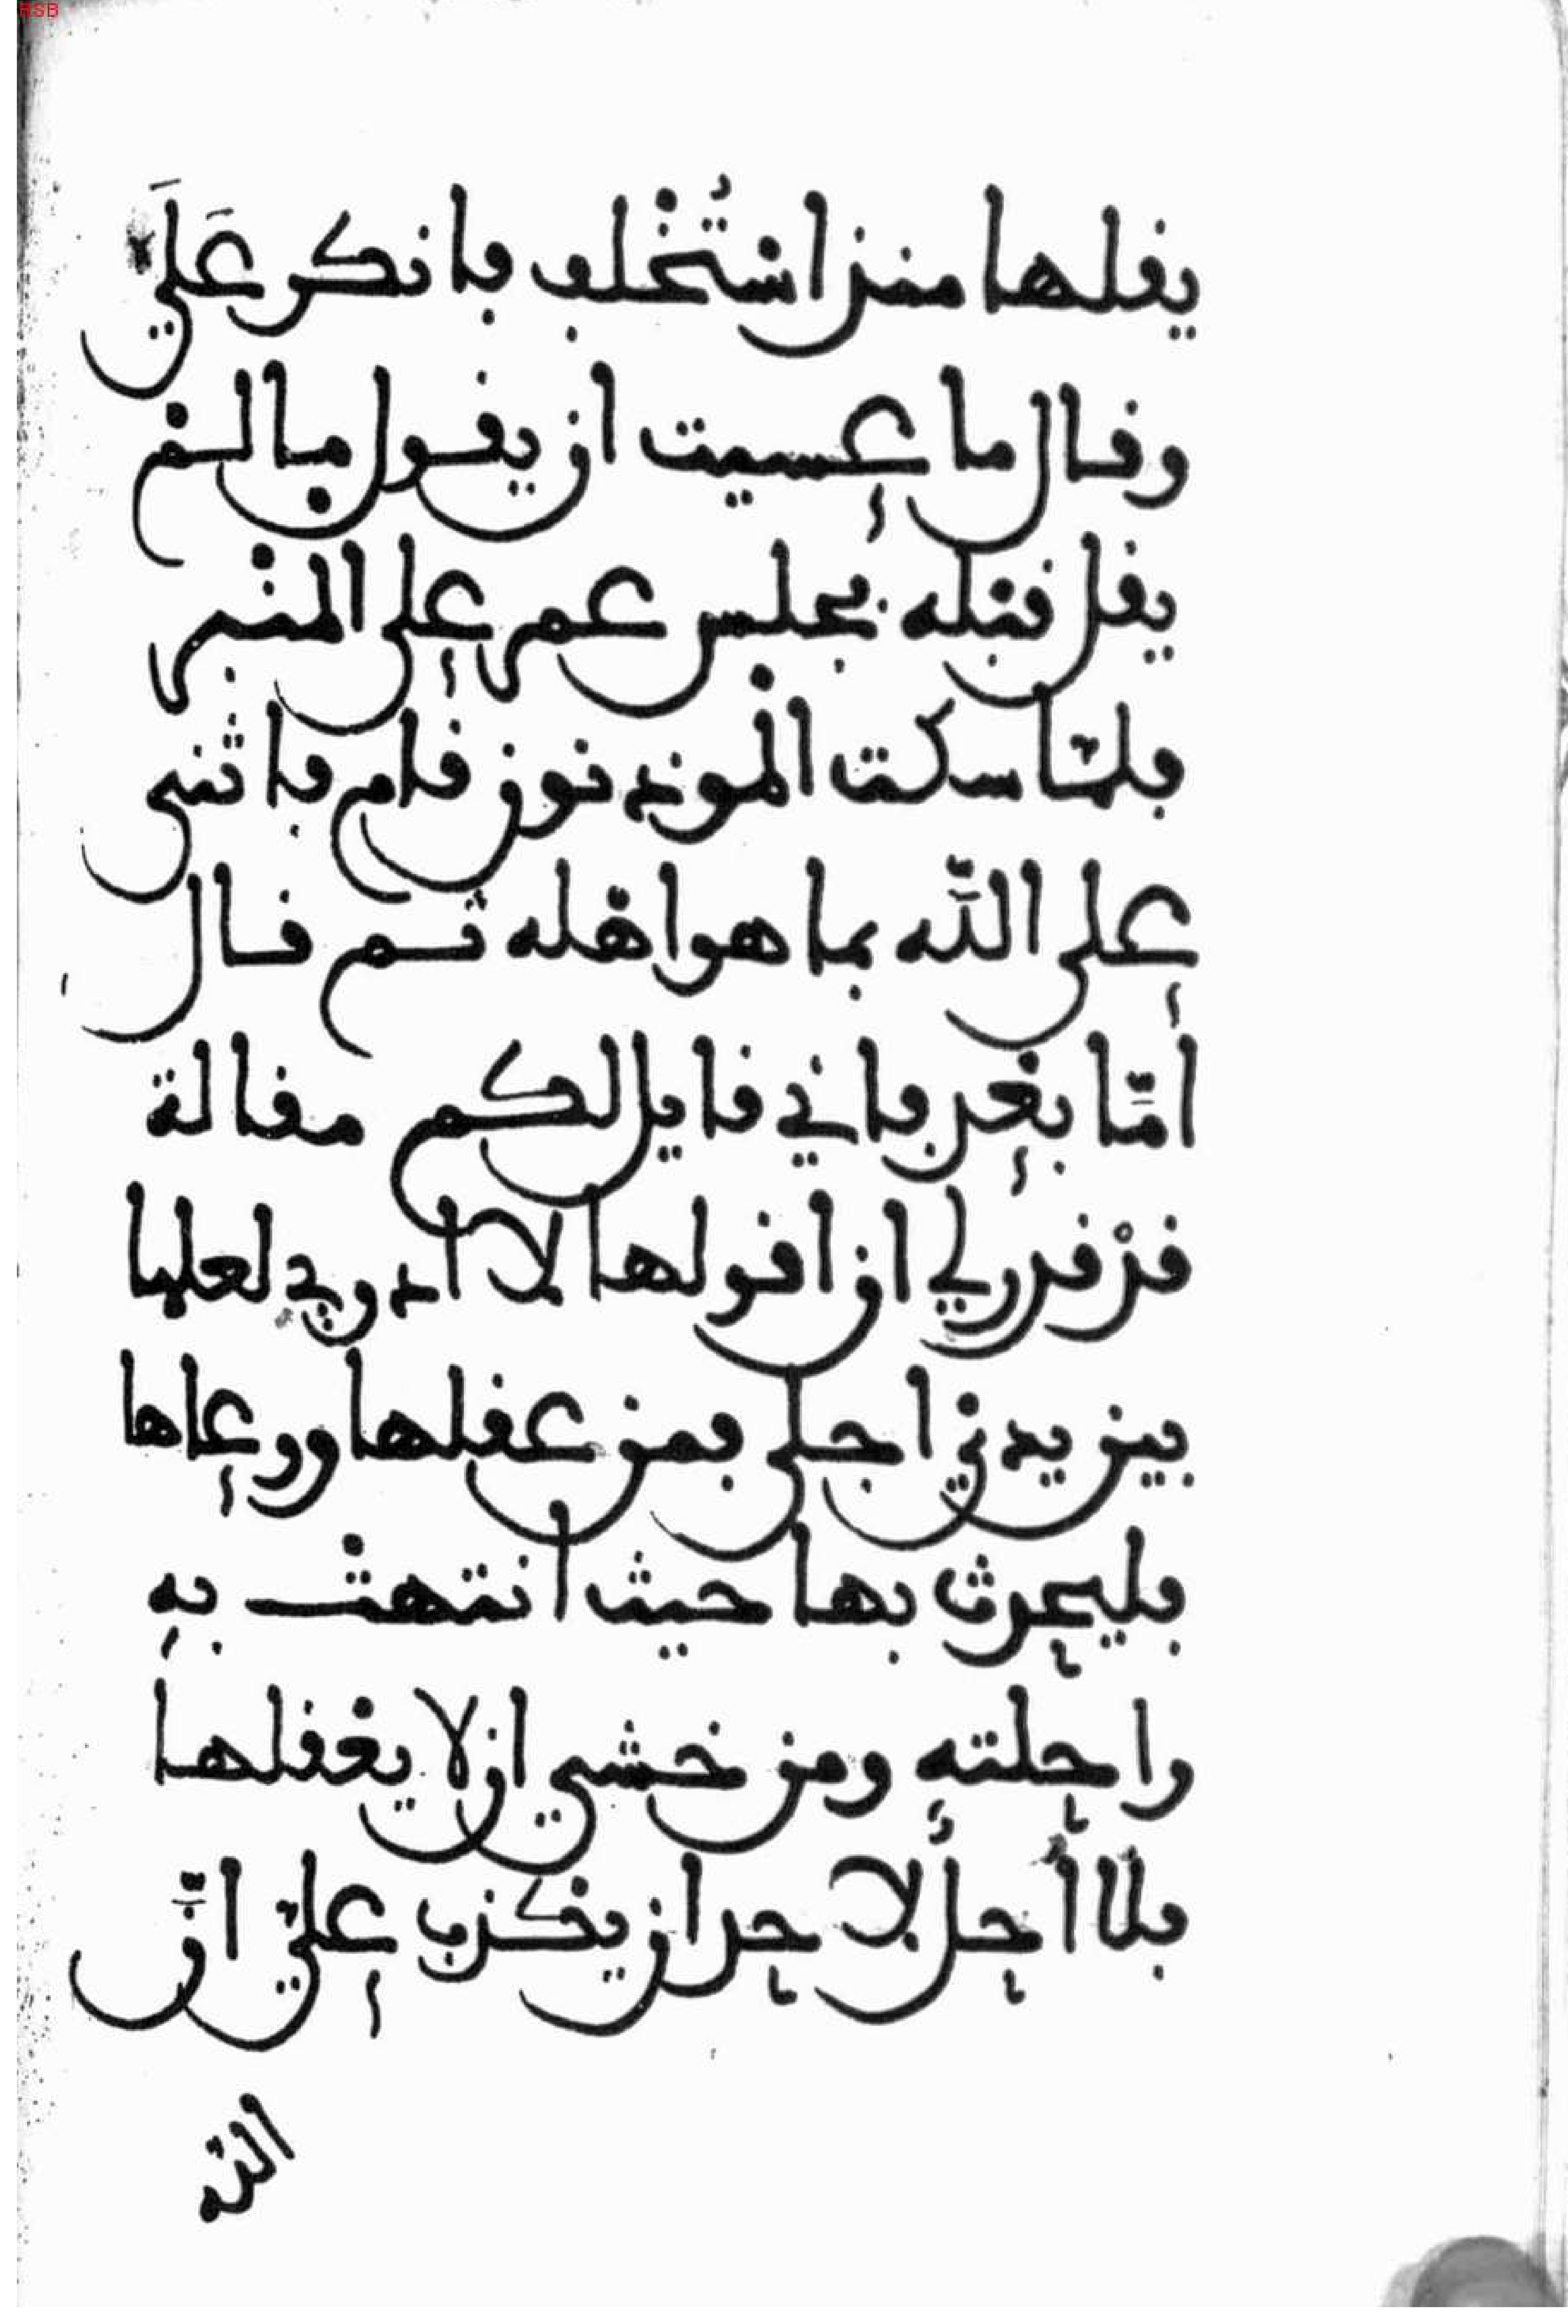 يقلها منذ استُخلف فانكر عَلَيَّ
وقال ما عسيت ان يقول ما لم
يقل قبله فجلس عمر على المنبر
فلمّا سكت الموذنون قام فاثنى
على اللّه بما هو اهله ثم قال
امّا بعد فاني قايل لكم مقالة
قدْ قدر لي ان اقولها لا ادري لعلها
بين يدي اجلي فمن عقلها ووعاها
فليحدث بها حيث انتهت به
راحلته ومن خشي ان لا يعقلها
فلا أحل لاحد ان يكذب عليّ انّ
اللّه